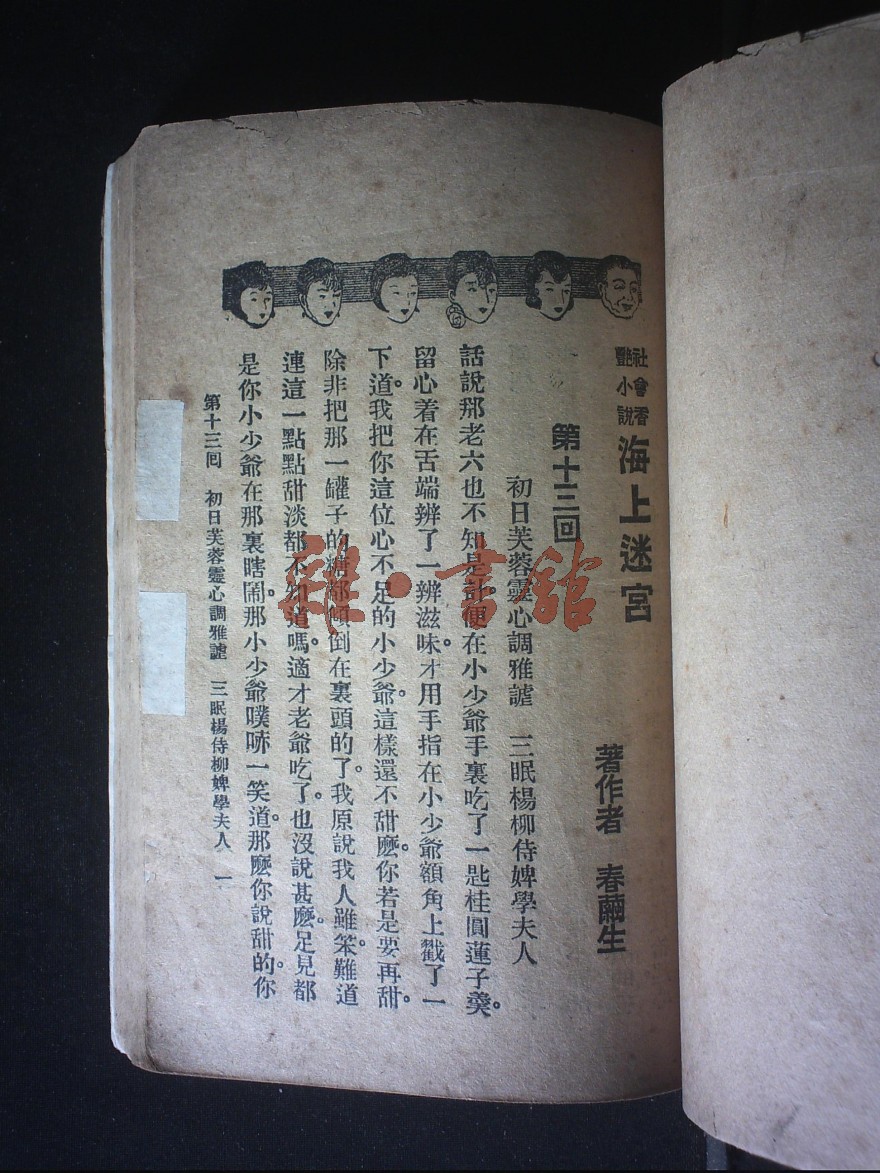 社會香
艷小說
海上迷宮
著作者　春繭生
第十三回
初日芙蓉靈心調雅謔　三眠楊柳侍婢學夫人
話說那老六也不知是計。便在小少爺手裏吃了一匙桂圓蓮子羹。
留心着在舌端辨了一辨滋味。才用手指在小少爺額角上戳了一
下道。我把你這位心不足的小少爺。這樣還不甜麽。你若是要再甜。
除非把那一罐子的糖都傾倒在裏頭的了。我原說我人雖笨。難道
連這一點點甜淡都不知道嗎。適才老爺吃了。也沒說甚麽。足見都
是你小少爺在那裏瞎鬧。那小少爺噗哧一笑道。那麽你說甜的。你
第十三回　初日芙蓉靈心調雅謔　三眠楊侍柳婢學夫人　一
雜·書館